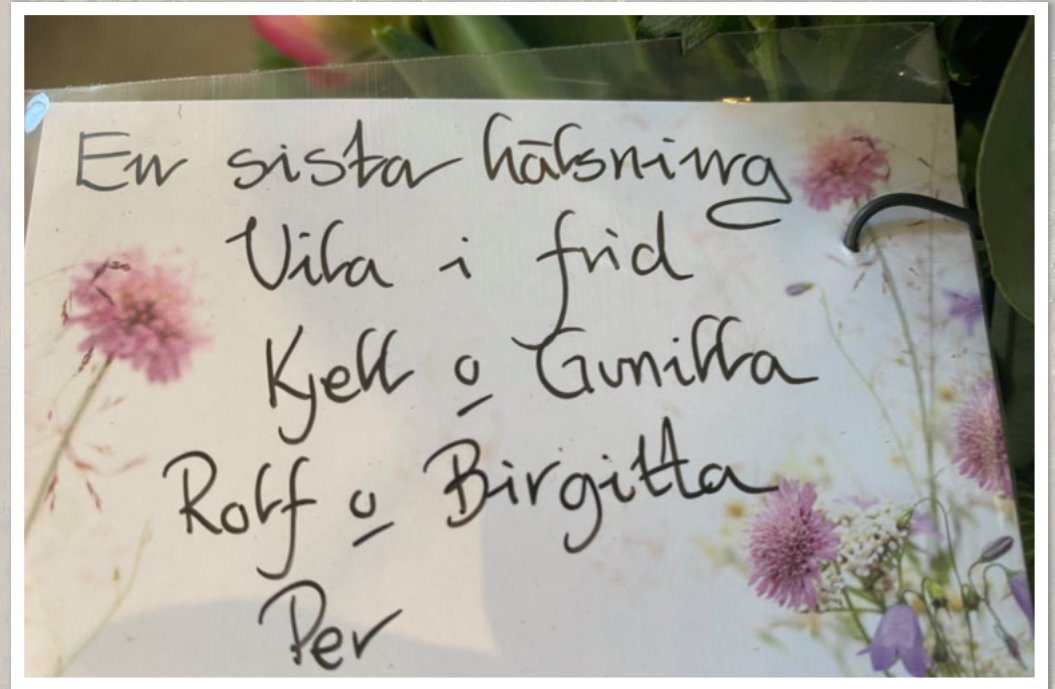 En sista hälsning
Vila i frid
Kjell o Gunilla
Rolf o Birgitta
Per